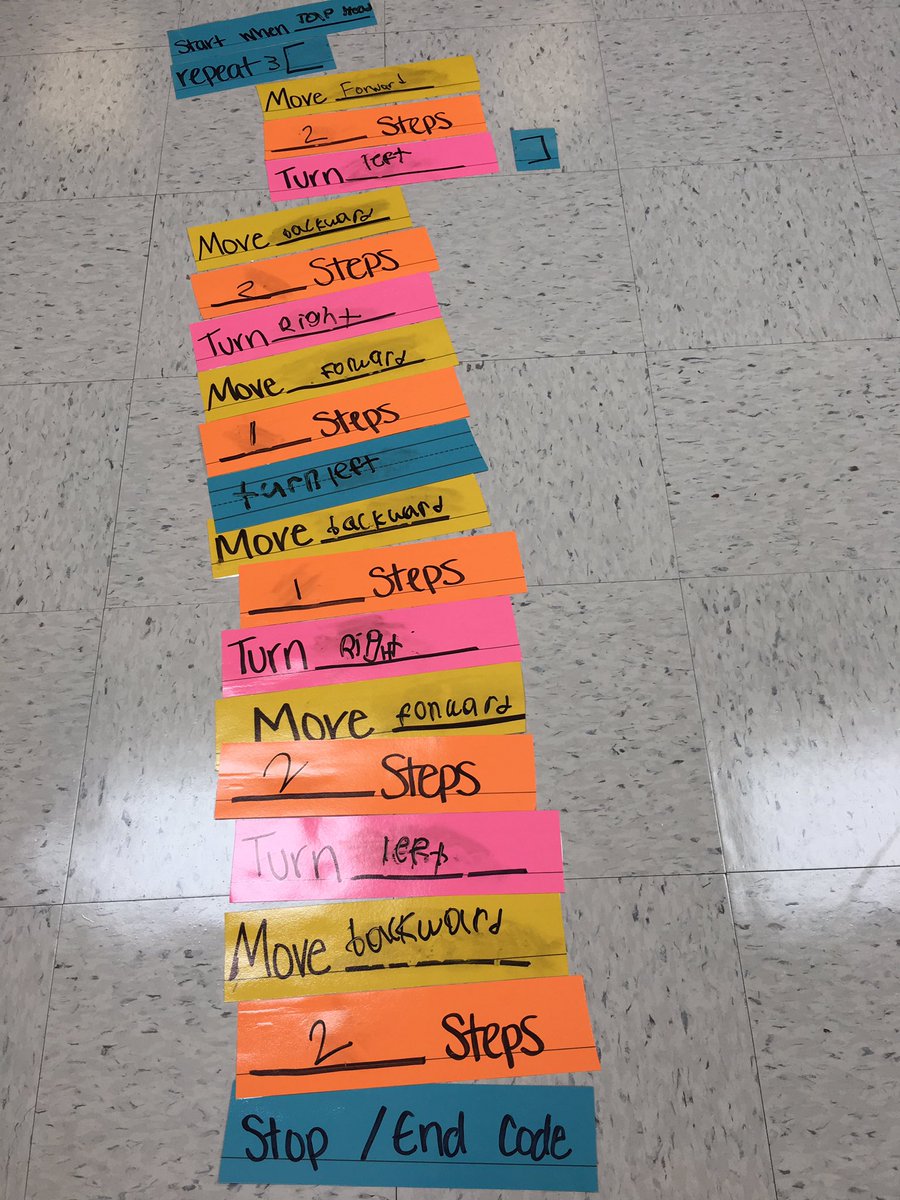 Start when Tap Head
repeat 3 [
Move Forward
2 Steps
Turn left
]
Move backward
2 Steps
Turn Right
Move Forward
1 Steps
turn left
Move backward
1 Steps
Turn Right
Move forward
2 Steps
Turn left
Move backward
2 Steps
Stop / End Code